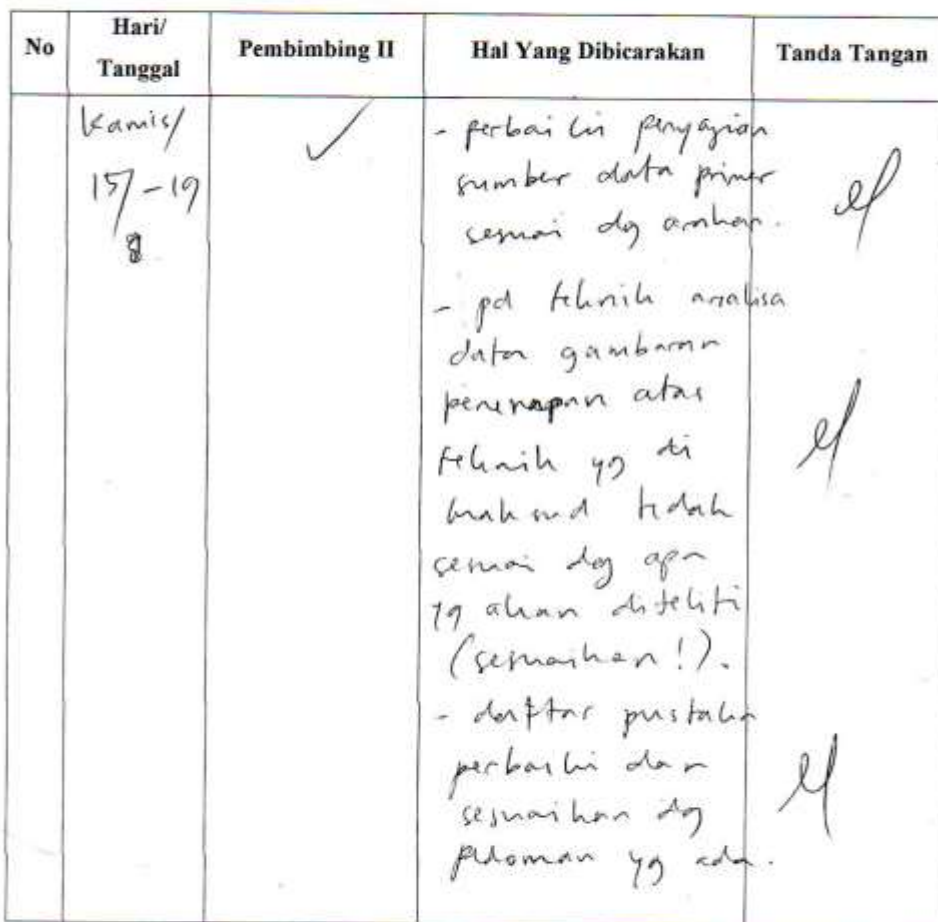 No Hari/ Tanggal Pembimbing II Hal Yang Dibicarakan Tanda Tangan
Kamis/
15/ - 19
8
- perbaiki penyajian
sumber data primer
sesuai dg arahan.
- pd teknik analisa
data gambaran
penerapan atas
teknik yg di
maksud tidak
sesuai dg apa
yg akan diteliti
(sesuaikan!).
- daftar pustaka
perbaiki dan
sesuaikan dg
pedoman yg ada.